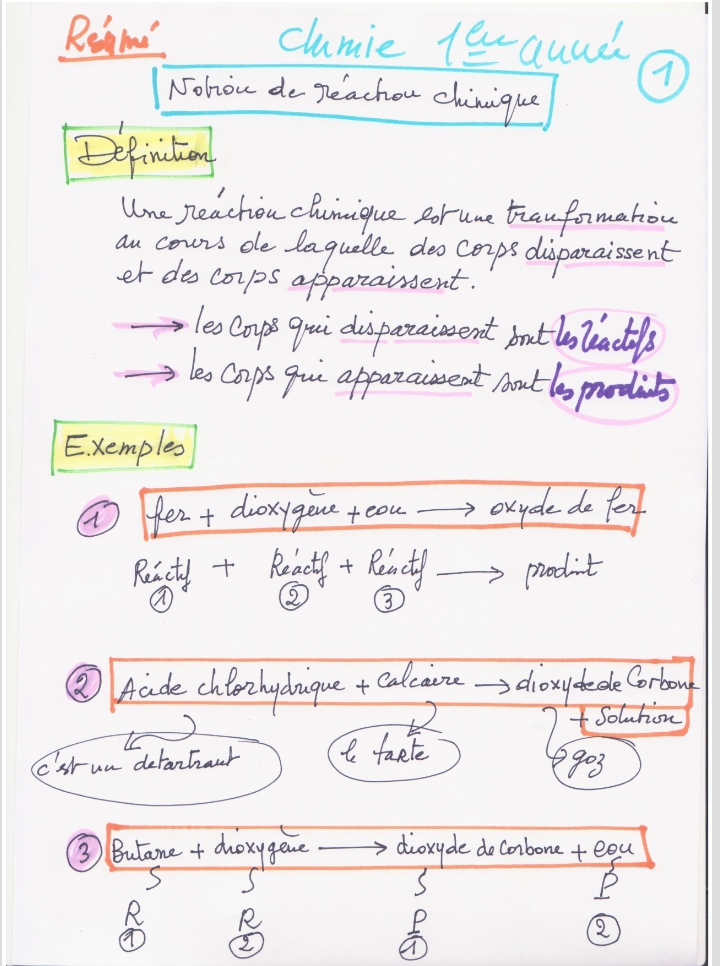 Résumé
Chimie 1ère année
1
Notion de réaction chimique
Définition
Une réaction chimique est une transformation
au cours de laquelle des corps disparaissent
et des corps apparaissent.
→ les corps qui disparaissent sont les réactifs
→ les corps qui apparaissent sont les produits
Exemples
1 fer + dioxygène + eau → oxyde de fer
Réactif + Réactif + Réactif → produit
1 2 3
2 Acide chlorhydrique + calcaire → dioxyde de Carbone
+ Solution
c'est un détartrant le tarte gaz
3 Butane + dioxygène → dioxyde de Carbone + eau
R R P P
1 2 1 2